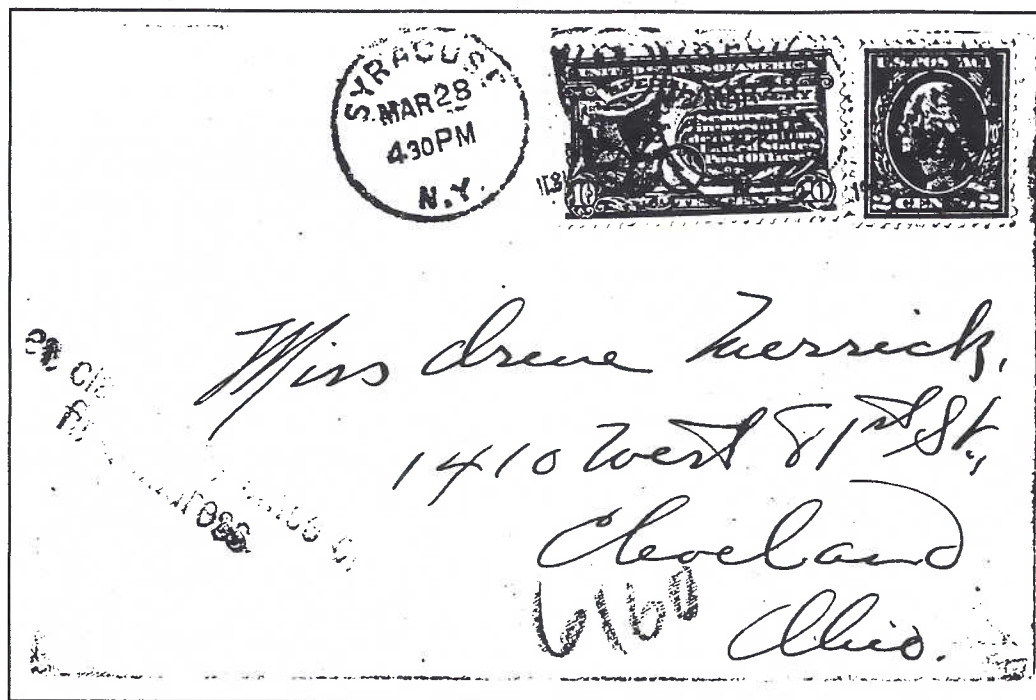 SYRACUSE
MAR 28
4 30 PM
N.Y.
UNITED STATES OF AMERICA
SPECIAL DELIVERY
10
U.S. POSTAGE
2 CENTS 2
Miss Irene Merrick,
1410 West 81st St.,
Cleveland
Ohio.
6160